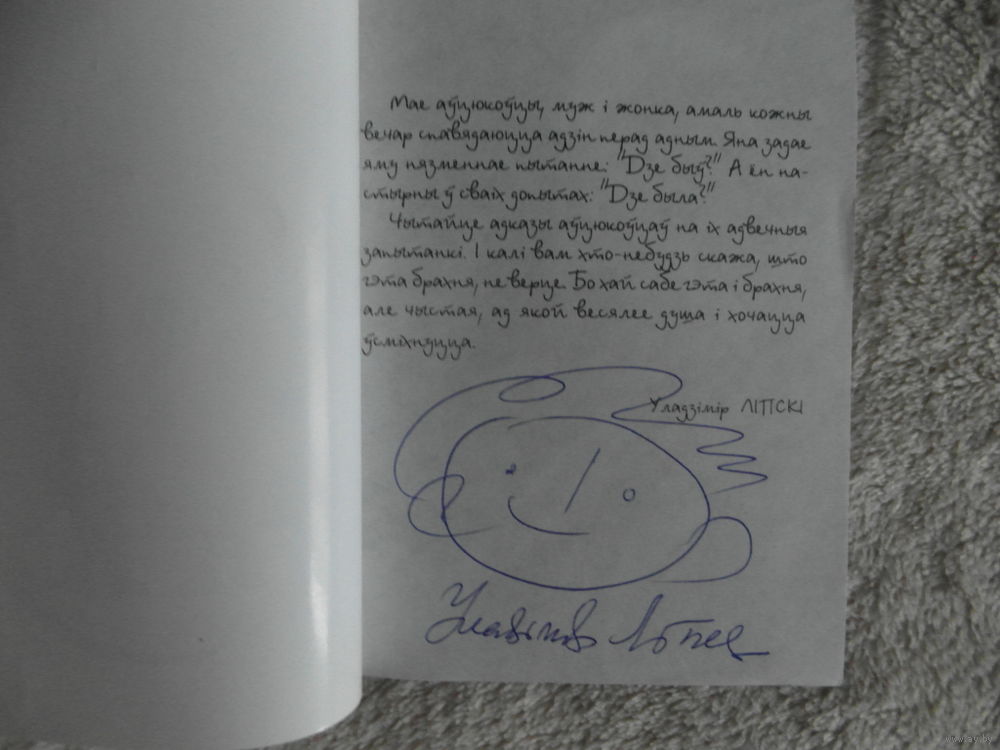 Мае аўцюкоўцы, муж і жонка, амаль кожны
вечар спавядаюцца адзін перад адным. Яна задае
яму нязменнае пытанне: "Дзе быў?" А ён на-
стырны ў сваіх допытах: "Дзе была?"
Чытайце адказы аўцюкоўцаў на іх адвечныя
запытанкі. І калі вам хто-небудзь скажа, што
гэта брахня, не верце. Бо хай сабе гэта і брахня,
але чыстая, ад якой весялее душа і хочацца
ўсміхнуцца.
Уладзімір ЛІПСКІ
www.ay.by